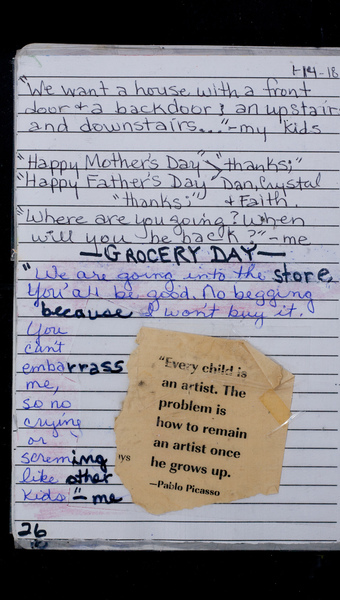 1-14-18
"We want a house with a front
door & a backdoor & an upstairs
and downstairs..." -my kids
"Happy Mother's Day" "thanks;"
"Happy Father's Day" Dan, Crystal
"thanks;" & Faith.
"Where are you going? When
will you be back?" -me
—GROCERY DAY—
"We are going into the store,
You'all be good. No begging
because I won't buy it.
You
can't
embarrass
me,
so no
crying
or
screming
like other
kids" -me
"Every child is
an artist. The
problem is
how to remain
an artist once
he grows up.
—Pablo Picasso
ys
26